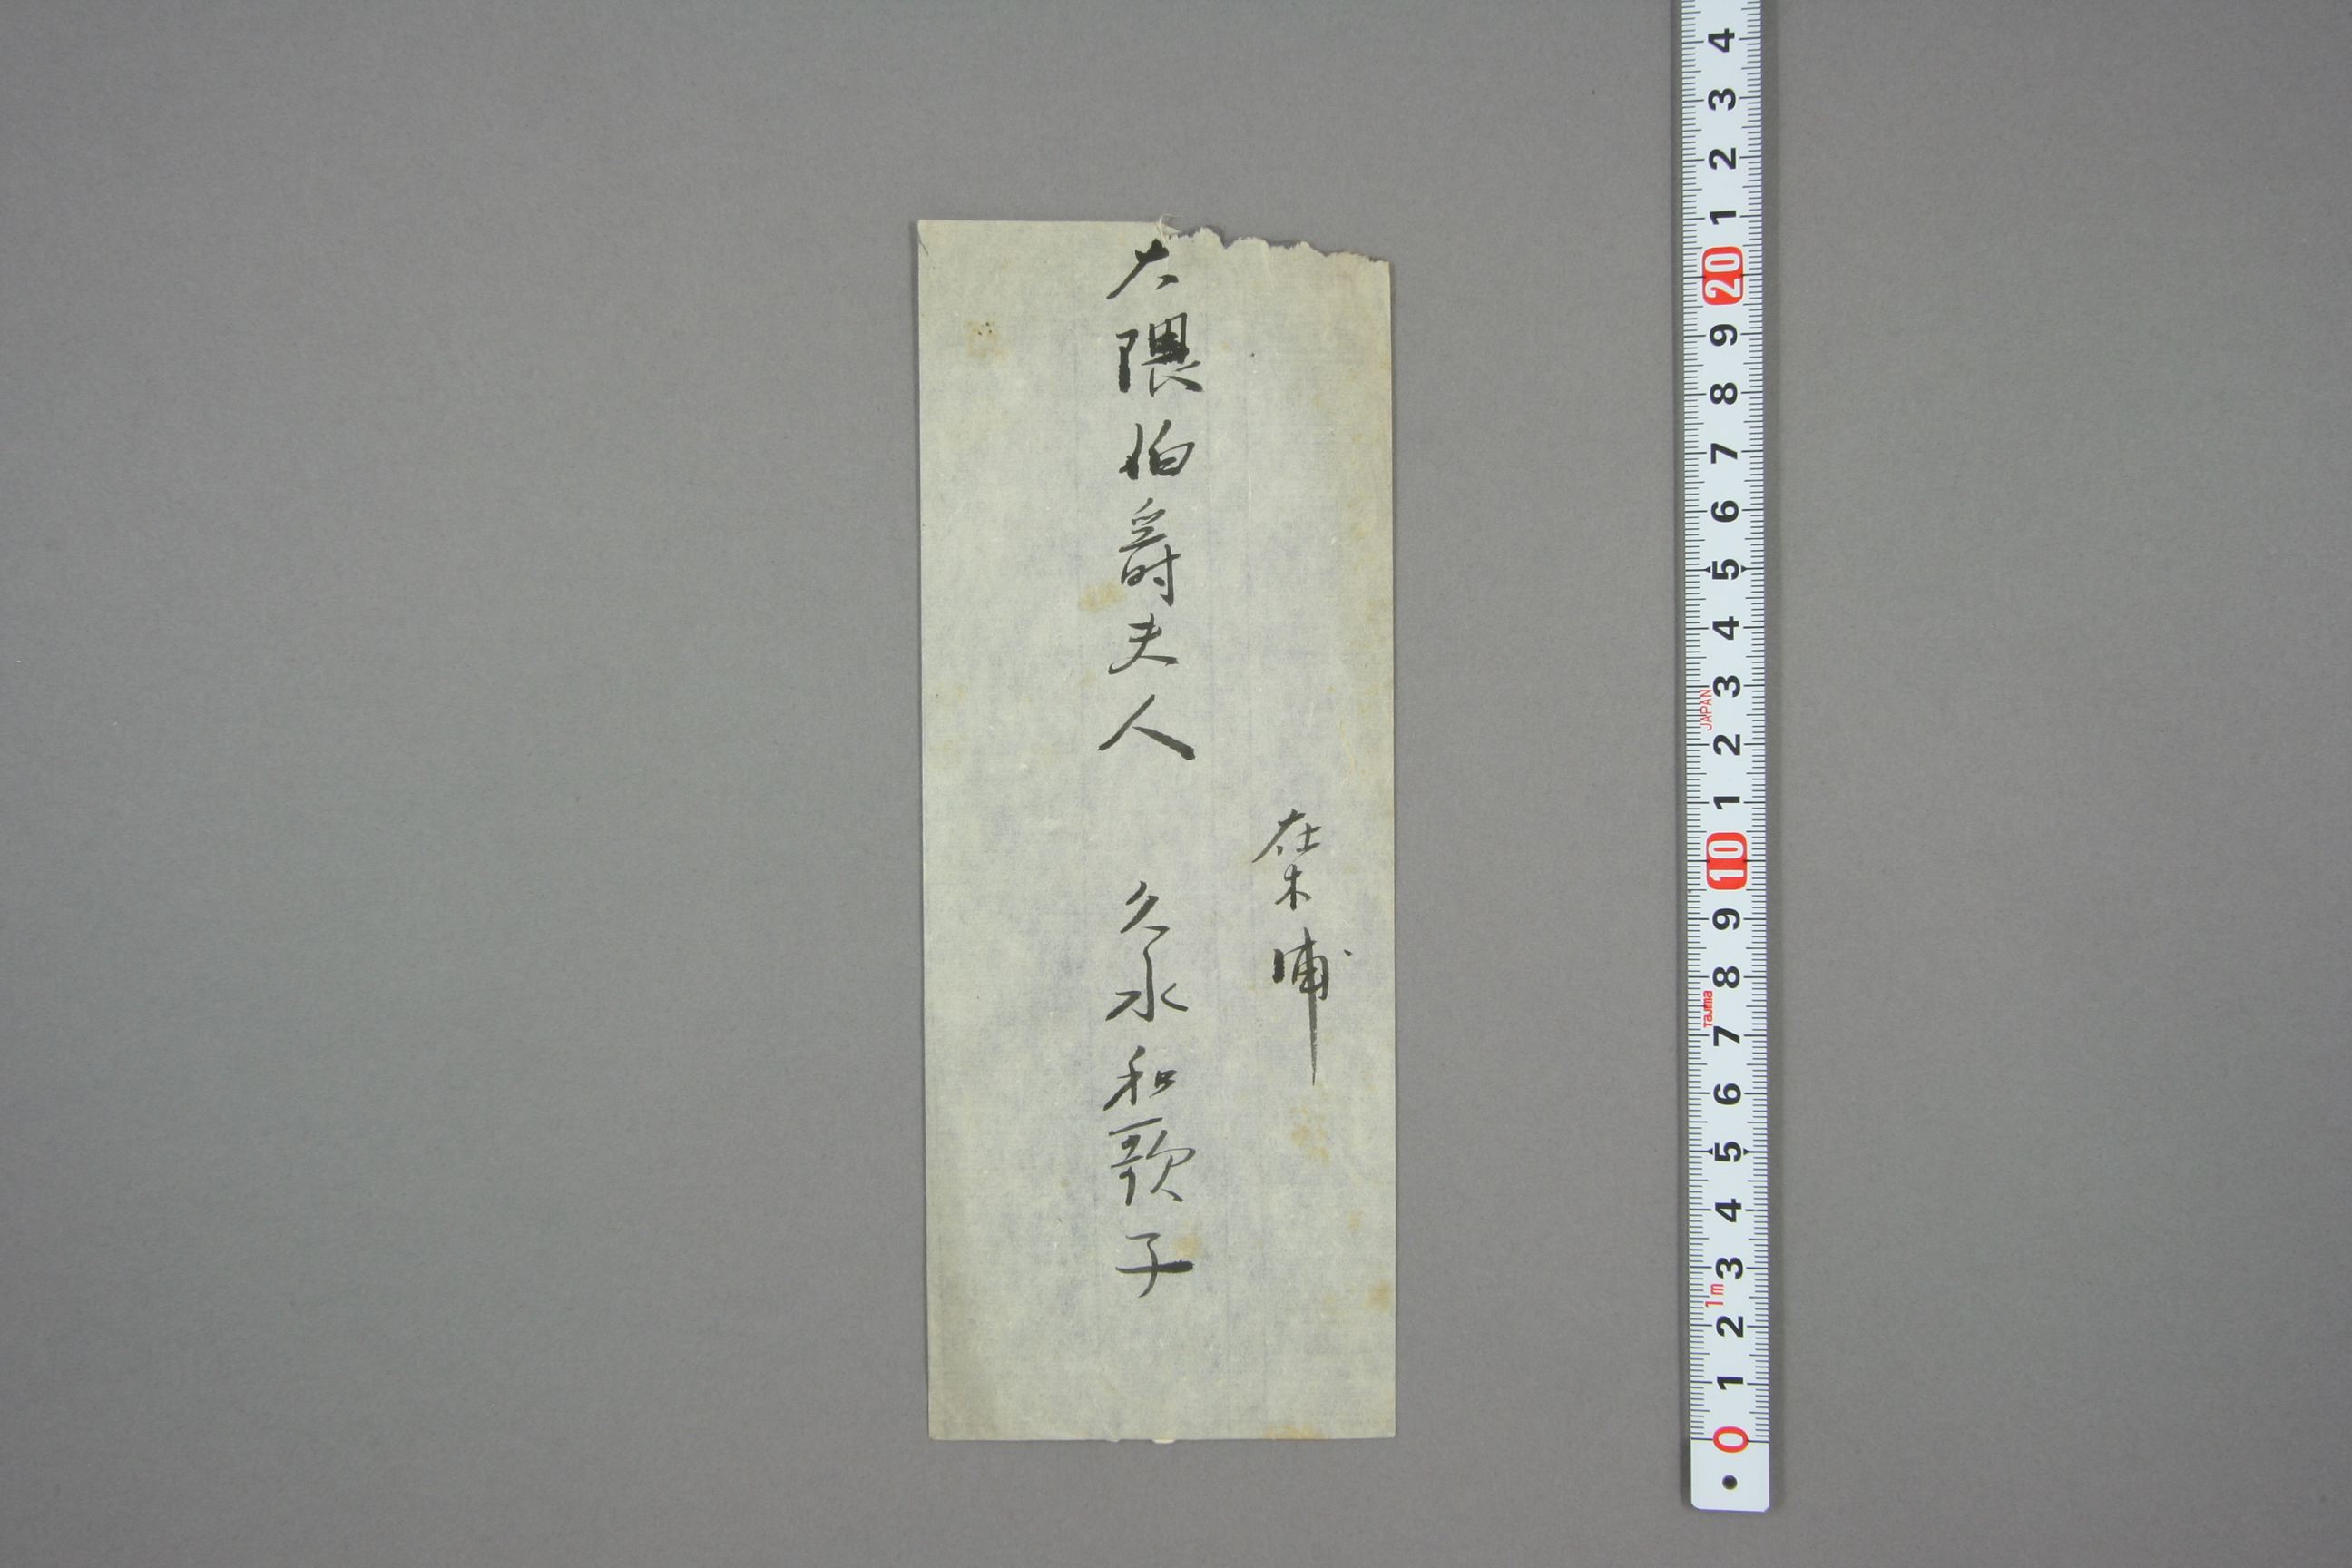 在木浦
大隈伯爵夫人 久永和歌子
4
3
2
1
20
9
8
7
6
5
4
3
JAPAN
2
1
10
9
8
Tajima
7
6
5
4
3
1m
2
1
0